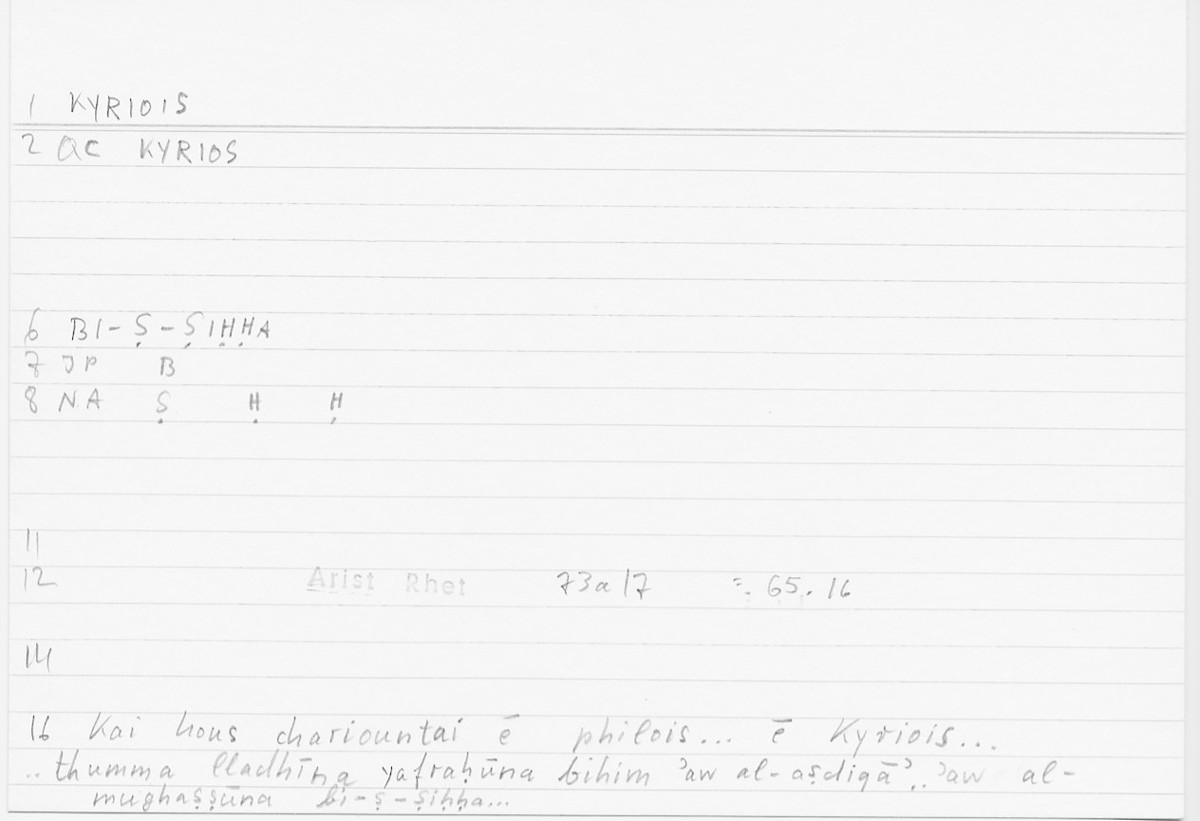 1 KYRIOIS
2 QC KYRIOS
6 BI-Ṣ-ṢIḤḤA
7 JP B
8 NA Ṣ Ḥ Ḥ
11
12 Arist Rhet 73a17 = 65.16
14
16 Kai hous chariountai ē philois... ē Kyriois...
..thumma lladhīna yafraḥūna bihim ʾaw al-aṣdiqāʾ.. ʾaw al-
mughaṣṣūna bi-ṣ-ṣiḥḥa...